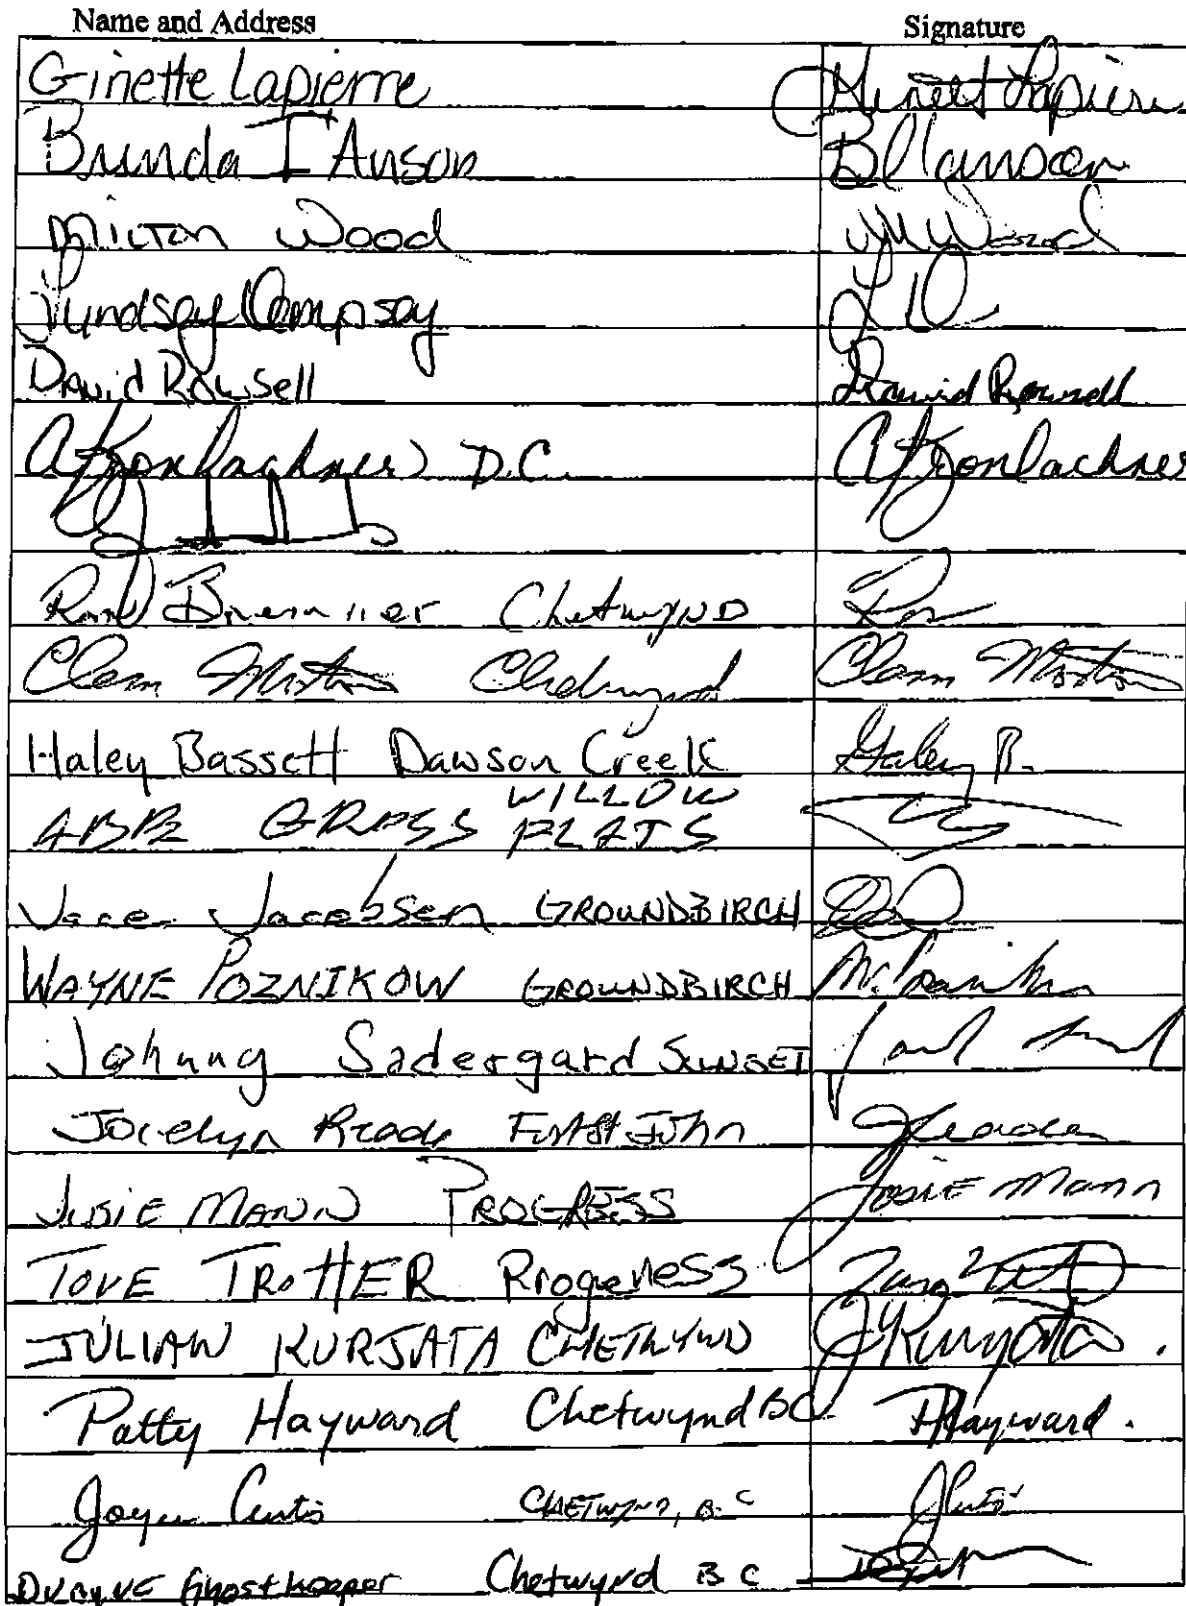 Name and Address Signature
Ginette Lapierre Ginette Lapierre
Brenda I'Anson B I'anson
Milton Wood M Wood
Lyndsay Dempsay L D
David Rowsell David Rowsell
D.C.
Bremner Chetwynd Ron
Clem Chetwynd Clem
Haley Bassett Dawson Creek Haley B.
ABE GROSS WILLOW FLATS
Jacobsen GROUNDBIRCH
WAYNE POZNIKOW GROUNDBIRCH
Johnny Sadergard SUNSET
Jocelyn Reade Fort St John
JOSIE MANN PROGRESS JOSIE Mann
TOVE TROTTER Progress
JULIAN KURJATA CHETWYND J Kurjata.
Patty Hayward Chetwynd BC P Hayward.
Joyce Curtis CHETWYND, B.C J Curtis
Ghostkeeper Chetwynd B C